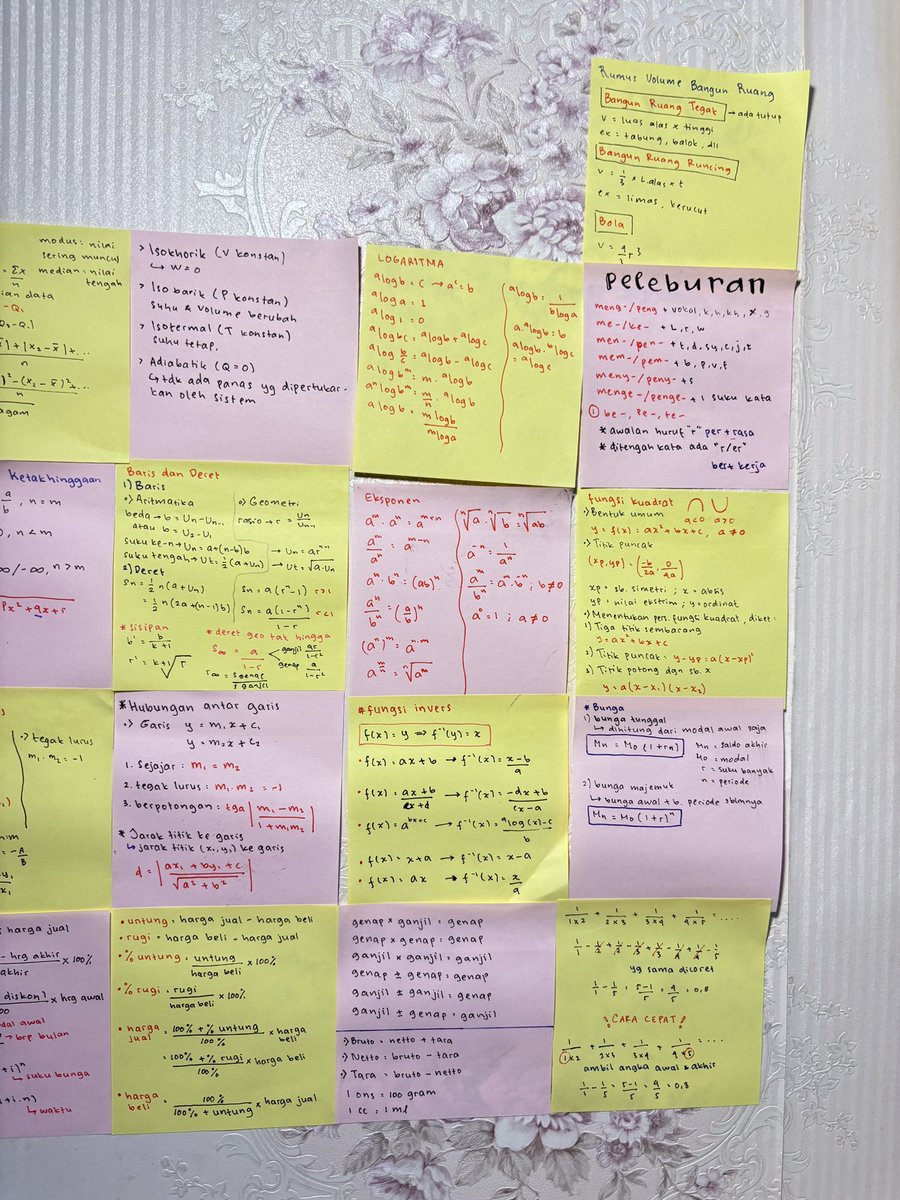 Rumus Volume Bangun Ruang
Bangun Ruang Tegak → ada tutup
V = luas alas x tinggi
ex = tabung, balok, dll
Bangun Ruang Runcing
V = 1/3 x L.alas x t
ex = limas, kerucut
Bola
V = 4/3 r³
modus : nilai
sering muncul
= Σx/n median = nilai
tengah
ian data
- Q₁
Q₃ - Q₁)
x̄| + |x₂ - x̄| + ...
n
)² - (x₂ - x̄)² + ...
n
agam
> Isokhorik (V konstan)
↳ W = 0
> Iso barik (P konstan)
suhu & volume berubah
> Isotermal (T konstan)
suhu tetap.
> Adiabatik (Q = 0)
↳ tdk ada panas yg dipertukar-
kan oleh sistem
LOGARITMA
ᵃlog b = c → aᶜ = b
ᵃlog a = 1
ᵃlog 1 = 0
ᵃlog bc = ᵃlog b + ᵃlog c
ᵃlog b/c = ᵃlog b - ᵃlog c
ᵃlog bᵐ = m . ᵃlog b
ᵃⁿlog bᵐ = m/n . ᵃlog b
ᵃlog b = ᵐlog b / ᵐlog a
ᵃlog b = 1 / ᵇlog a
a.ᵃlog b = b
ᵃlog b . ᵇlog c
= ᵃlog c
Peleburan
meng-/peng + vokal, k, h, kh, g
me-/ke- + L, r, w
men-/pen- + t, d, sy, c, j, z
mem-/pem- + b, p, v, f
meny-/peny- + s
menge-/penge- + 1 suku kata
① be-, pe-, te-
* awalan huruf "r" per + rasa
* ditengah kata ada "r/er"
ber + kerja
Ketakhinggaan
a/b , n = m
0, n < m
∞/-∞, n > m
px² + qx + r
Baris dan Deret
1) Baris
•> Aritmatika
beda → b = Un - Un-₁
atau b = U₂ - U₁
suku ke-n → Un = a + (n-b)b
suku tengah → Ut = 1/2 (a + Un)
•> Geometri
rasio → r = Un/Un-₁
→ Un = arⁿ⁻¹
→ Ut = √a.Un
2) Deret
Sn = 1/2 n (a + Un)
= 1/2 n (2a + (n-1)b)
Sn = a(rⁿ - 1) r > 1
Sn = a(1 - rⁿ)/1-r r < 1
* sisipan
b' = b/k+1
r' = ᵏ⁺¹√r
* deret geo tak hingga
S∞ = a/1-r ganjil ar/1-r²
genap a/1-r²
r∞ = S genap / S ganjil
Eksponen
aᵐ . aⁿ = aᵐ⁺ⁿ
aᵐ/aⁿ = aᵐ⁻ⁿ
aⁿ . bⁿ = (ab)ⁿ
aⁿ/bⁿ = (a/b)ⁿ
(aⁿ)ᵐ = aⁿ·ᵐ
a^(m/n) = ⁿ√aᵐ
ⁿ√a . ⁿ√b = ⁿ√ab
a⁻ⁿ = 1/aⁿ
aᵐ/bⁿ = aᵐ . b⁻ⁿ , b ≠ 0
a⁰ = 1 ; a ≠ 0
fungsi kuadrat ∩ ∪
a<0 a>0
•> Bentuk umum
y = f(x) = ax² + bx + c, a ≠ 0
•> Titik puncak
(xp, yp) = (-b/2a , D/4a)
xp = sb. simetri ; x = absis
yp = nilai ekstrim ; y = ordinat
•> Menentukan pers. fungsi kuadrat, diket :
1) Tiga titik sembarang
y = ax² + bx + c
2) Titik puncak : y - yp = a(x - xp)²
3) Titik potong dgn sb. x
y = a(x - x₁)(x - x₂)
•> tegak lurus
m₁ . m₂ = -1
= -A/B
*Hubungan antar garis
•> Garis y = m₁x + c₁
y = m₂x + c₂
1. Sejajar : m₁ = m₂
2. tegak lurus : m₁ . m₂ = -1
3. berpotongan : tg a | m₁ - m₂ / 1 + m₁m₂ |
* Jarak titik ke garis
↳ jarak titik (x₁, y₁) ke garis
d = | ax₁ + by₁ + c / √a² + b² |
# fungsi invers
f(x) = y ⇒ f⁻¹(y) = x
• f(x) = ax + b → f⁻¹(x) = x-b/a
• f(x) = ax+b/cx+d → f⁻¹(x) = -dx+b/cx-a
• f(x) = aᵇˣ⁺ᶜ → f⁻¹(x) = ᵃlog(x) - c/b
• f(x) = x + a → f⁻¹(x) = x - a
• f(x) = ax → f⁻¹(x) = x/a
* Bunga
1) bunga tunggal
↳ dihitung dari modal awal saja
Mn = Mo (1 + rn)
Mn = saldo akhir
Mo = modal
r = suku banyak
n = periode
2) bunga majemuk
↳ bunga awal + b. periode sblmnya
Mn = Mo (1 + r)ⁿ
x harga jual
- hrg akhir x 100%
akhir
diskon) x hrg awal
00
dal awal
→ brp bulan
+ i)ⁿ
↳ suku bunga
1 + i.n)
↳ waktu
• untung = harga jual - harga beli
• rugi = harga beli - harga jual
• % untung = untung/harga beli x 100%
• % rugi = rugi/harga beli x 100%
• harga jual = 100% + % untung/100% x harga beli
= 100% + % rugi/100% x harga beli
• harga beli = 100%/100% + untung x harga jual
genap x ganjil = genap
genap x genap = genap
ganjil x ganjil = ganjil
genap ± genap = genap
ganjil ± ganjil = genap
ganjil ± genap = ganjil
•> Bruto = netto + tara
•> Netto = bruto - tara
•> Tara = bruto - netto
1 ons = 100 gram
1 cc = 1 ml
1/1x2 + 1/2x3 + 1/3x4 + 1/4x5 = ....
1/1 - 1/2 + 1/2 - 1/3 + 1/3 - 1/4 + 1/4 - 1/5
yg sama dicoret
1/1 - 1/5 = 5-1/5 = 4/5 = 0,8
¡ CARA CEPAT !
1/1x2 + 1/2x3 + 1/3x4 + 1/4x5 = ....
ambil angka awal & akhir
1/1 - 1/5 = 5-1/5 = 4/5 = 0,8